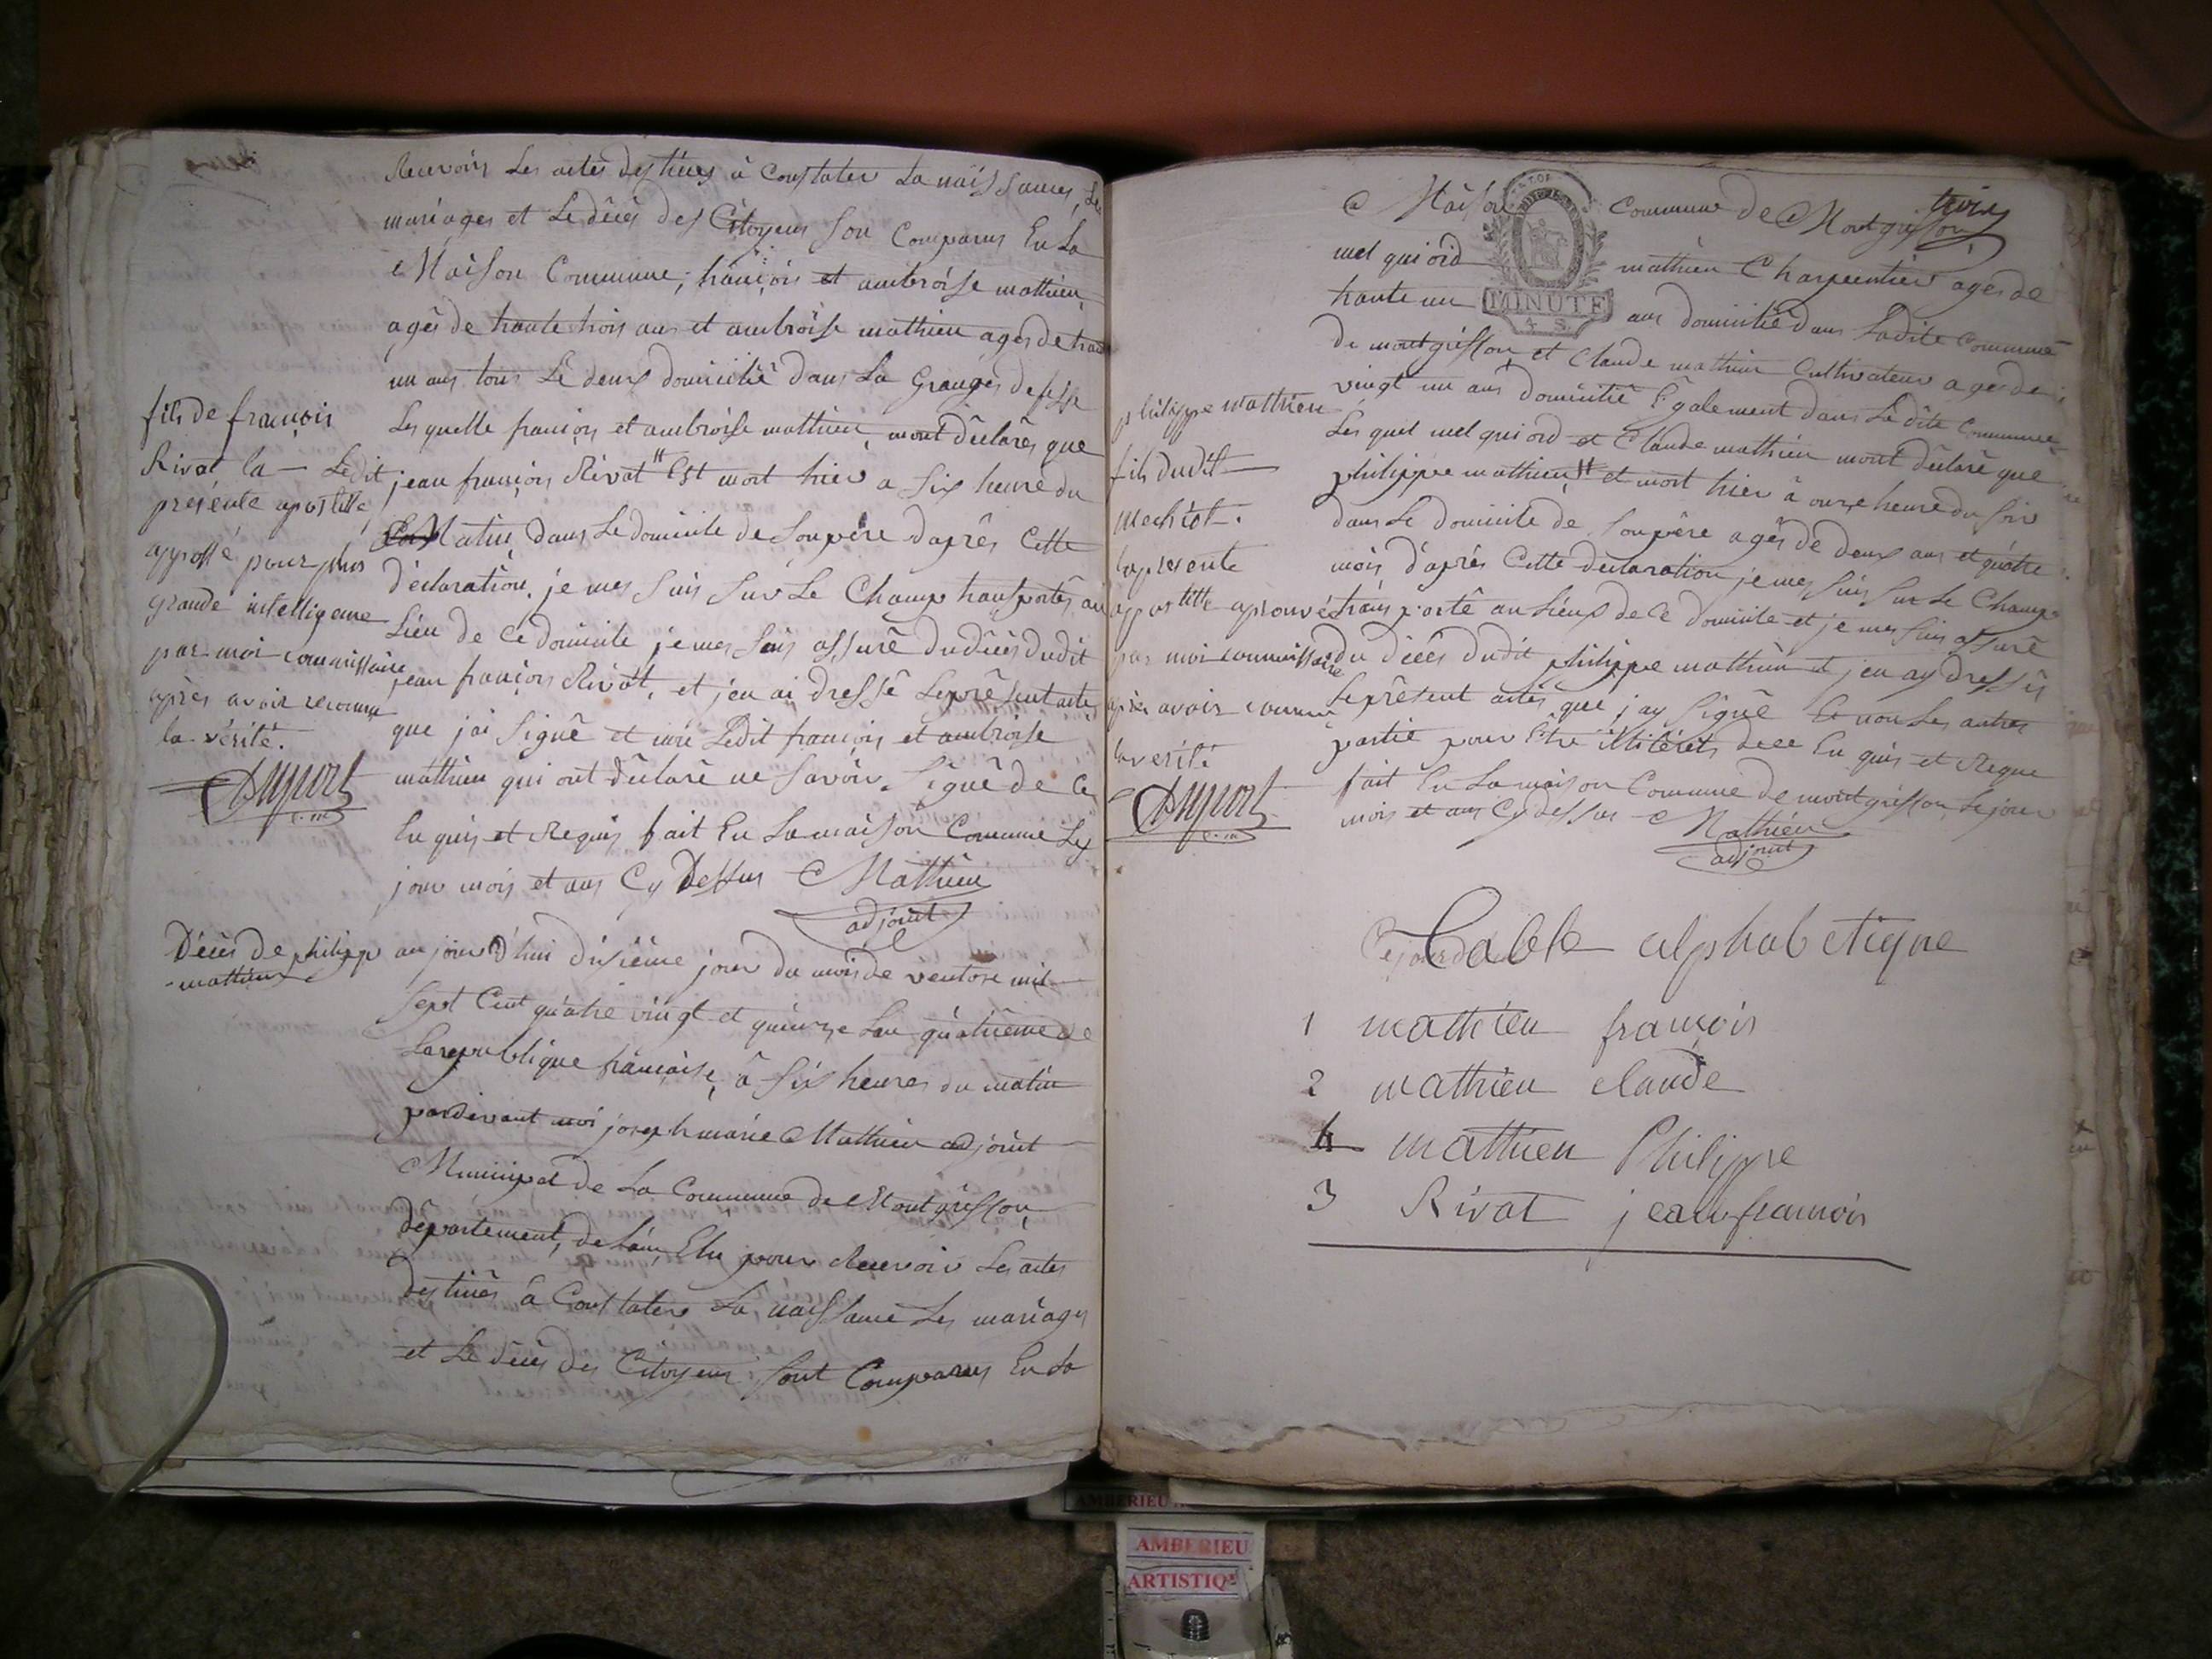 Recevoir Les actes destinés à Constater La naissances, Le
mariages et Le dècès des Citoyens Son Comparus En La
Maison Commune; françois et ambroise mathieu
agés de trante trois ans et ambroise mathieu agés de trante
un ans tous Le deux domicilié dans La Granges
Les quelle françois et ambroise mathieu, mont déclarés que
Ledit jean françois Rivat # Est mort hier a six heure du
Matin dans Le domicile de Son père daprès Cette
déclaration. je mes suis sur Le Champ transportés au
Lieu de Ce domicile je mes suis assuré du décès dudit
jean françois Rivat, et jeu ai dressé Le présent acte
que jai signé et Ledit françois et ambroise
mathieu qui ont déclaré ne savoir signé de Ce
En quis et Requis fait En La maison Commune Les
jour mois et ans Cy Dessus Mathieu
adjoint
fils de françois
Rivat la
présente apostille
appossé pour plus
grande intelligence
par moi commissaire
après avoir reconnu
la vérité.
Duport
c. m
Décès de philippe
mathieu
aujourd'hui disième jour du mois de ventose mil
sept Cent quatre vingt et quinze Lan quatrième de
La republique française, à six heures du matin
pardevant moi joseph marie Mathieu adjoint
Municipal de La Commune de Montgrisson
département, de Lain, Elu pour Recevoir Les actes
destinés à Constater La naissance Les mariages
et Le décès des Citoyens Sont Comparus En La
trois
Maison Commune de Montgrisson
mel quiord mathieu Charpentier agés de
trante un ans domicilié dans Ladite Commune
de montgrisson et Claude mathieu Cultivateur agés de
vingt un ans domicilié Egalement dans Le dite Commune
Les quel mel quiord et Claude mathieu mont déclaré que
philippe mathieu # et mort hier à onze heure du soir
dans Le domicile de Son père agés de deux ans et quatre
mois d'après Cette déclaration je mes suis sur Le Champ
trans porté au Lieux de Ce domicile et je mes suis assuré
du décès dudit philippe mathieu et jeu ay dressés
Le présent actes que jay signé Et non Les autres
partie pour Etre de Ce En quis et Reque
fait En La maison Commune de montgrisson Le jour
mois et ans Cy dessus Mathieu
adjoint
philippe mathieu
fils dudit
la presente
appostille aprouvé
par moi commissaire
après avoir connu
la verité
Duport
c. m
MINUTE
4 S.
Table alphabetique
1 mathieu françois
2 mathieu claude
4 mathieu Philippe
3 Rivat jean francois
AMBERIEU
AMBERIEU
ARTISTIQ